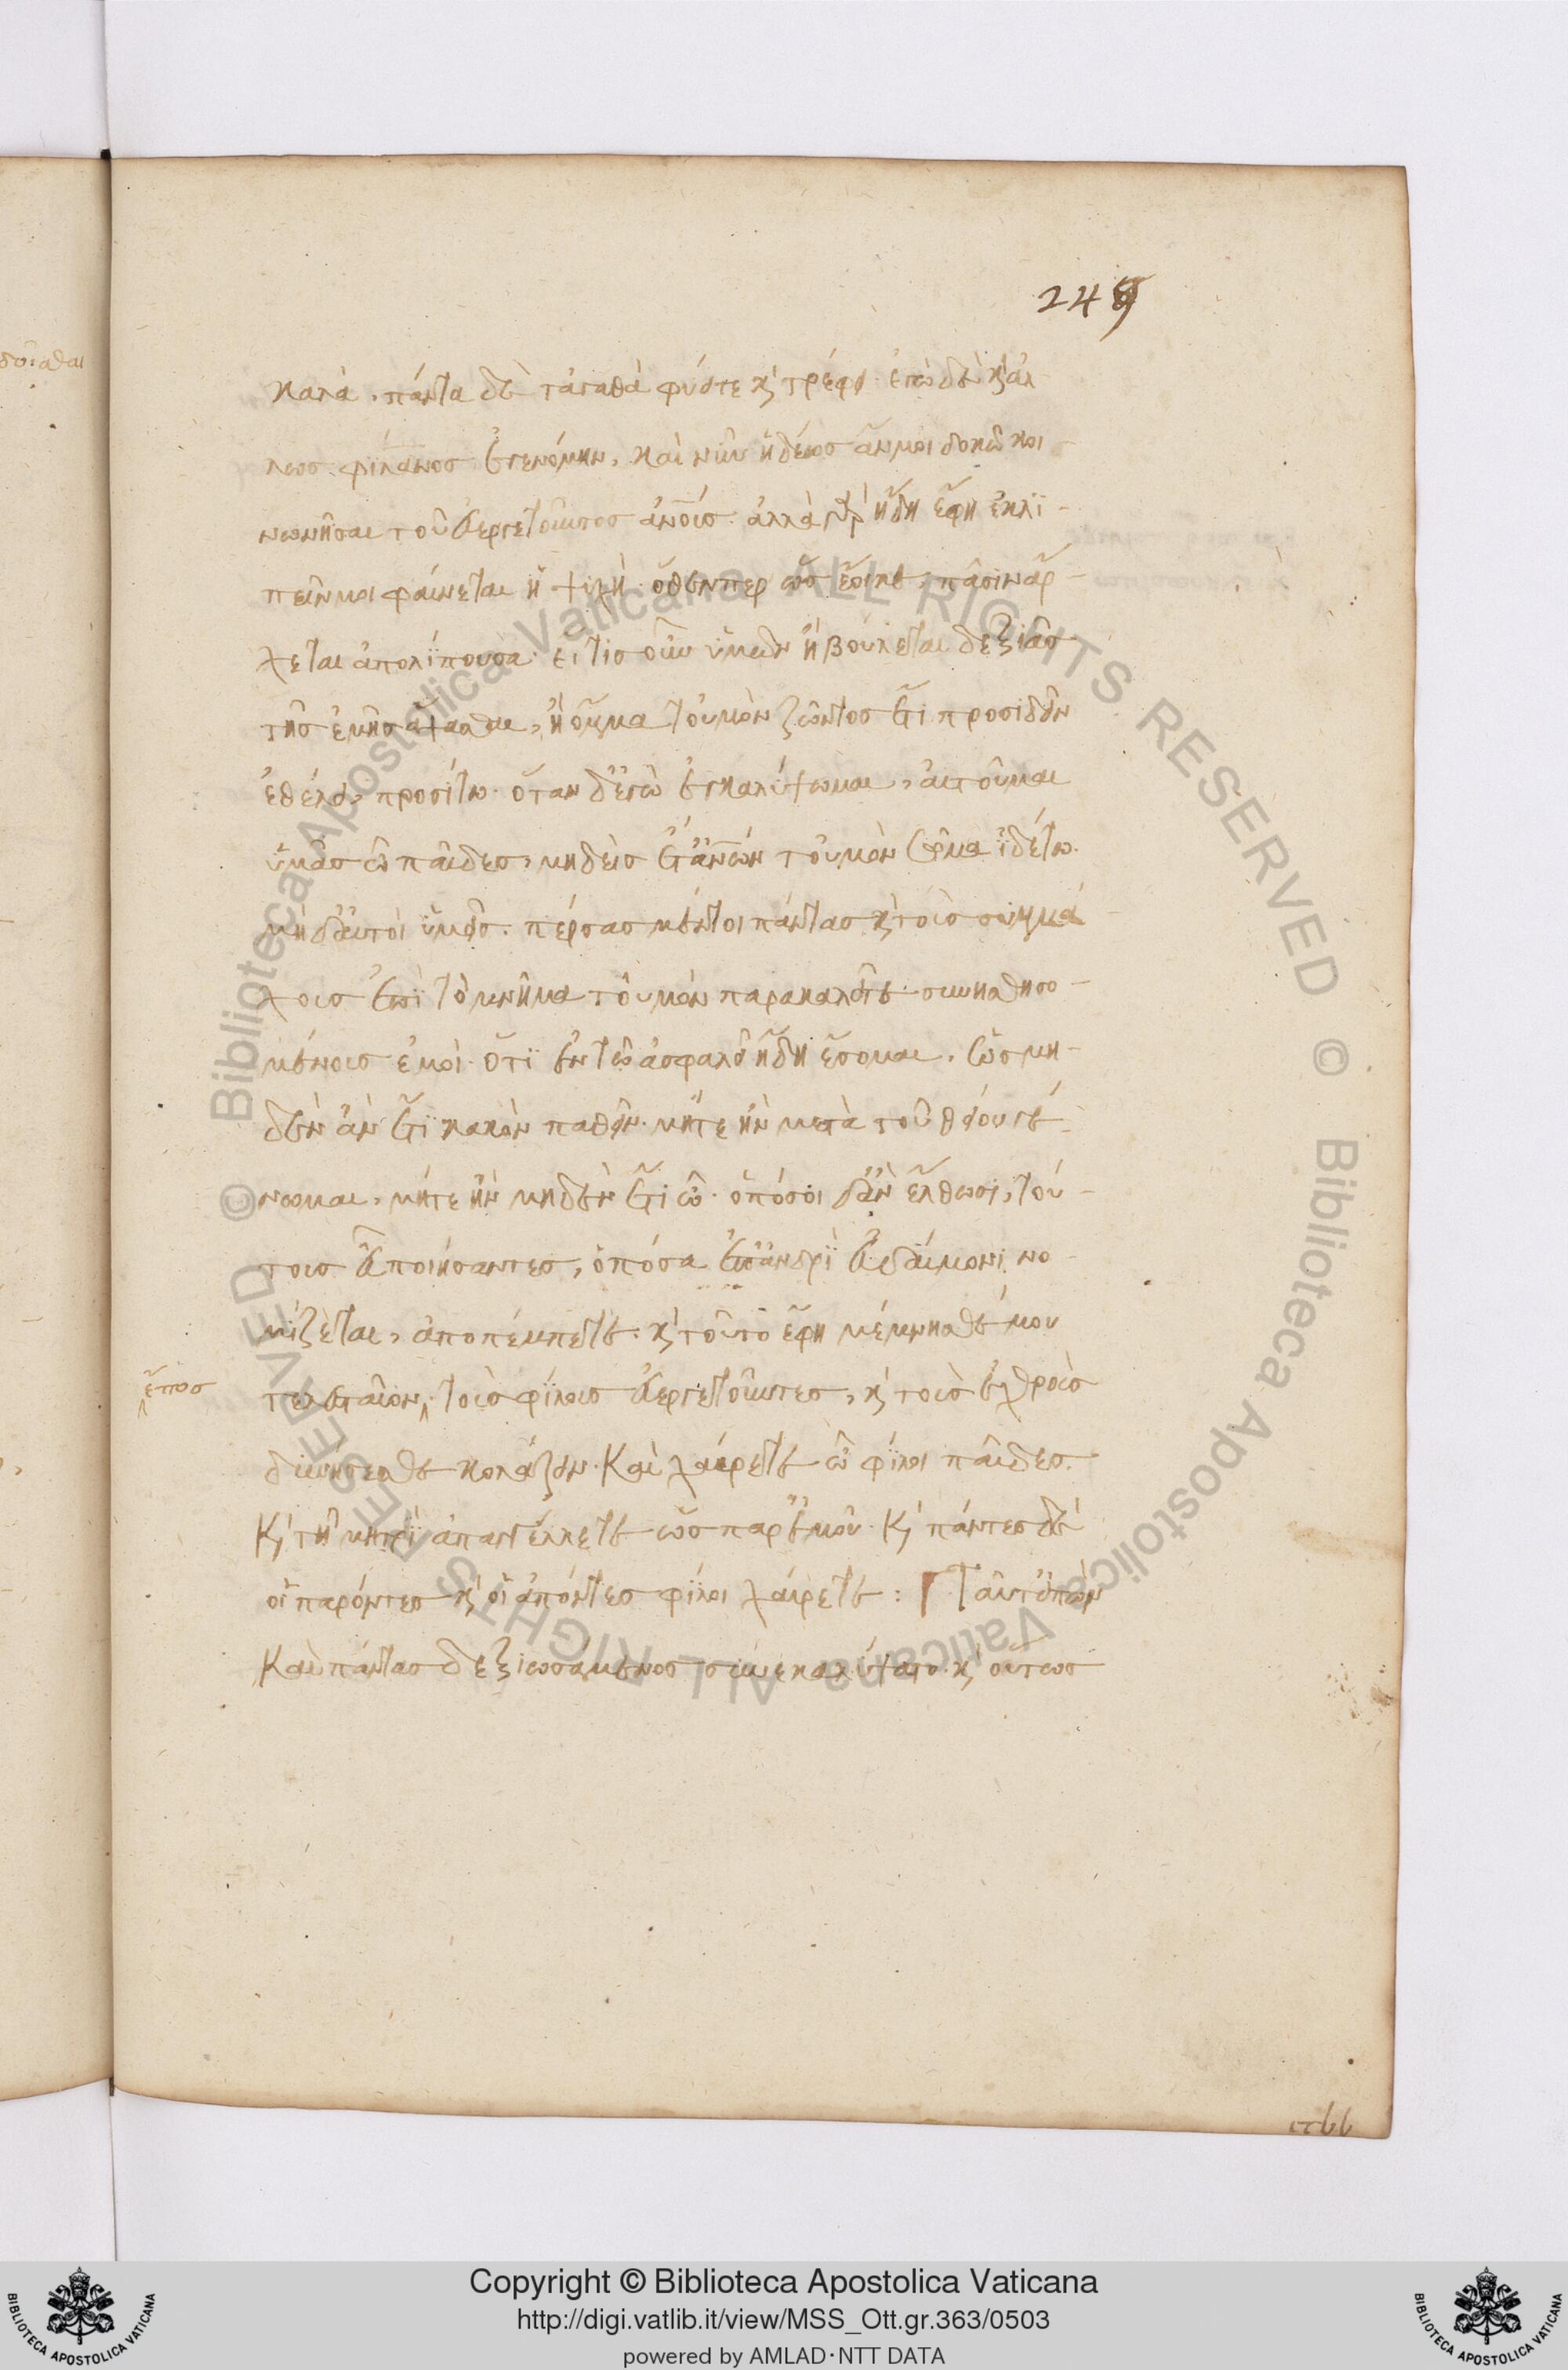 249
καλὰ, πάντα δὲ τἀγαθὰ φύει τε κ̀ τρέφει. ἐγὼ δὲ κ̀ ἄλ-
λως φιλάνος ἐγενόμην, καὶ νῦν ἡδέως ἄν μοι δοκῶ κοι-
νωνῆσαι τοῦ εὐεργετοῦντος ἀνοὺς. ἀλλὰ γὰρ ἤδη ἔφη ἐκλι-
πεῖν μοι φαίνεται ἡ ψυχὴ ὅθεν περ ὡς ἔοικε, πᾶσιν ἄρ-
χεται ἀπολίπουσα. εἴ τις οὖν ὑμῶν ἢ βούλεται δεξιᾶς
τῆς ἐμῆς ἅψασθαι, ἢ ὄμμα τοὐμὸν ζῶντος ἔτι προσιδεῖν
ἐθέλει, προσίτω. ὅταν δ' ἐγὼ ἐγκαλύψωμαι, αἰτοῦμαι
ὑμᾶς ὦ παῖδες, μηδεὶς ἔτ' ἀνων τοὐμὸν σῶμα ἰδέτω.
μηδ' αὐτοὶ ὑμεῖς. πέρσας μέντοι πάντας κ̀ τοὺς συμμά
χους ἐπὶ τὸ μνῆμα τοὐμὸν παρακαλεῖτε συνησθησο-
μένους ἐμοὶ ὅτι ἐν τῷ ἀσφαλεῖ ἤδη ἔσομαι, ὡς μη-
δὲν ἂν ἔτι κακὸν παθεῖν. μήτε ἢν μετὰ τοῦ θείου γέ-
νωμαι, μήτε ἢν μηδὲν ἔτι ὦ. ὁπόσοι δ' ἂν ἔλθωσι, τού-
τους εὖ ποιήσαντες, ὁπόσα ἐπ' ἀνδρὶ εὐδαίμονι νο-
μίζεται, ἀποπέμπετε. κ̀ τοῦτο ἔφη μέμνησθέ μου
ἔπος
τελευταῖον, τοὺς φίλους εὐεργετοῦντες, κ̀ τοὺς ἐχθροὺς
δυνήσεσθε κολάζειν. Καὶ χαίρετε ὦ φίλοι παῖδες.
Κ̀ τῇ μητρὶ ἀπαγγέλλετε ὡς παρ' ἐμοῦ. Κ̀ πάντες δὲ
οἱ παρόντες κ̀ οἱ ἀπόντες φίλοι χαίρετε: Ταῦτ' εἰπὼν
Καὶ πάντας δεξιωσάμενος συνεκαλύψατο. κ̀ οὕτως
Copyright © Biblioteca Apostolica Vaticana
http://digi.vatlib.it/view/MSS_Ott.gr.363/0503
powered by AMLAD·NTT DATA